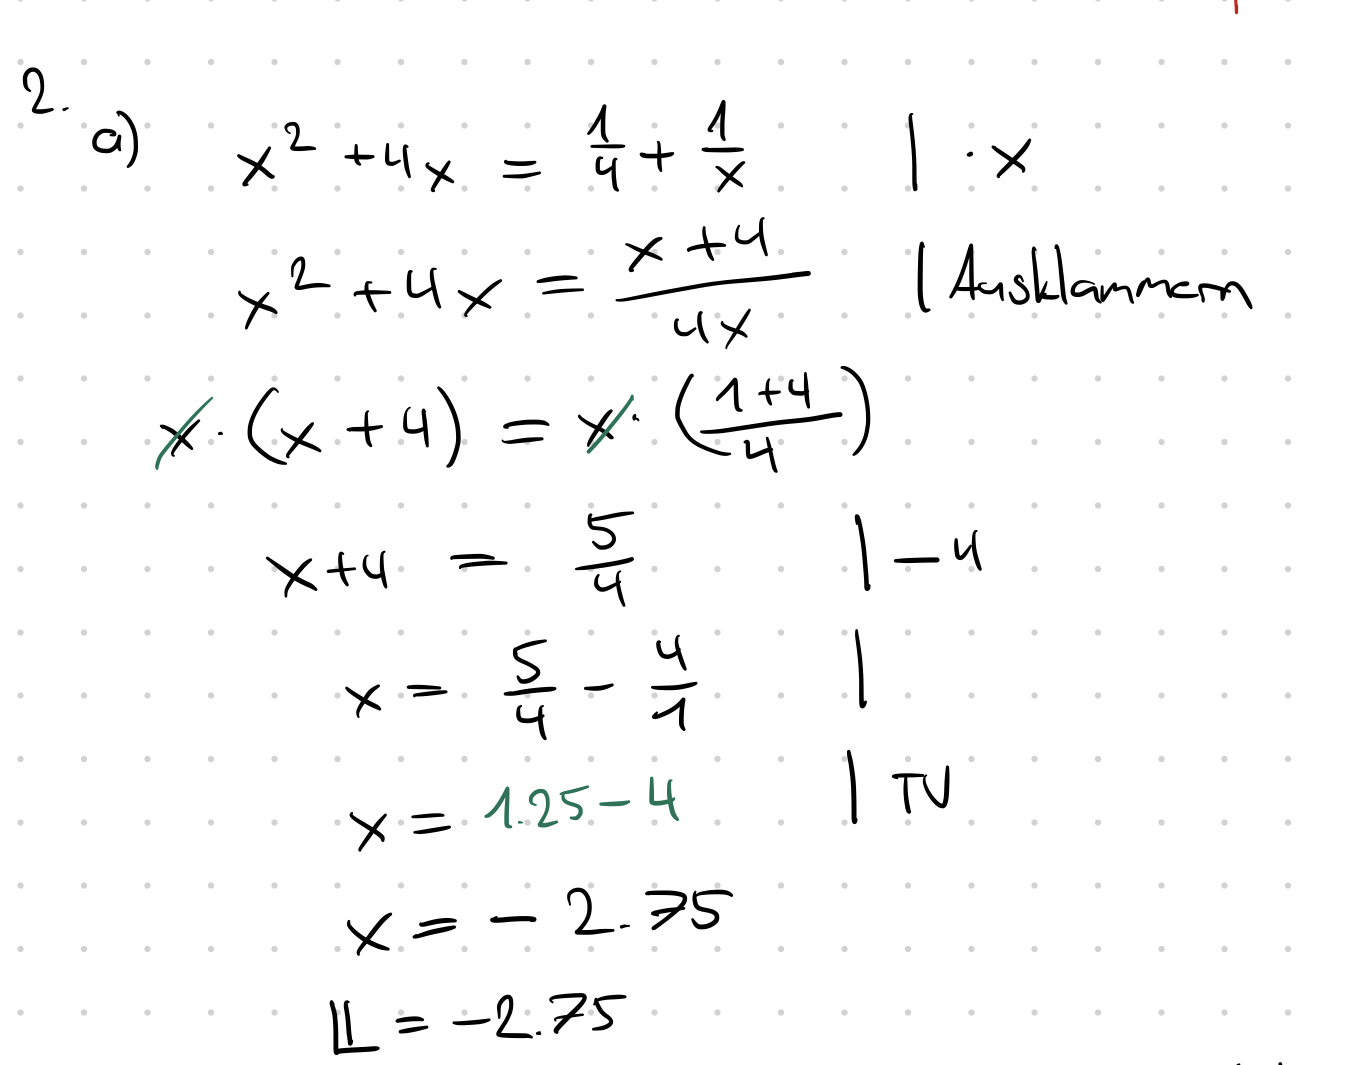 2.
a) x² + 4x = 1/4 + 1/x | · x
x² + 4x = (x + 4)/(4x) | Ausklammern
x · (x + 4) = x · ((1 + 4)/4)
x + 4 = 5/4 | − 4
x = 5/4 − 4/1 |
x = 1.25 − 4 | TU
x = − 2.75
𝕃 = −2.75